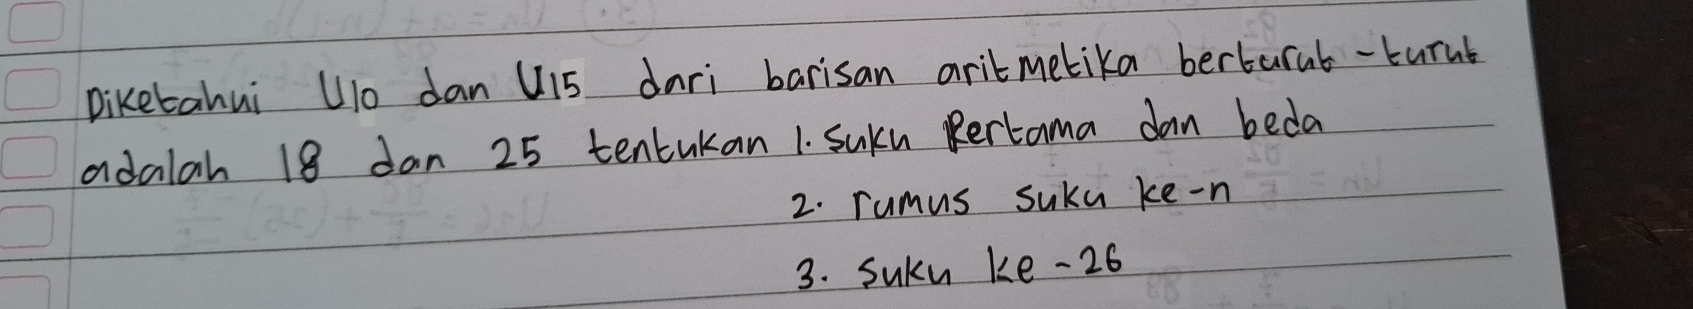 Diketahui U10 dan U15 dari barisan aritmetika berturut-turut
adalah 18 dan 25 tentukan 1. Suku Pertama dan beda
2. rumus suku ke-n
3. Suku ke-26